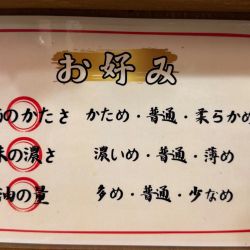 お好み
のかたさ かため・普通・柔らかめ
の濃さ 濃いめ・普通・薄め
の量 多め・普通・少なめ